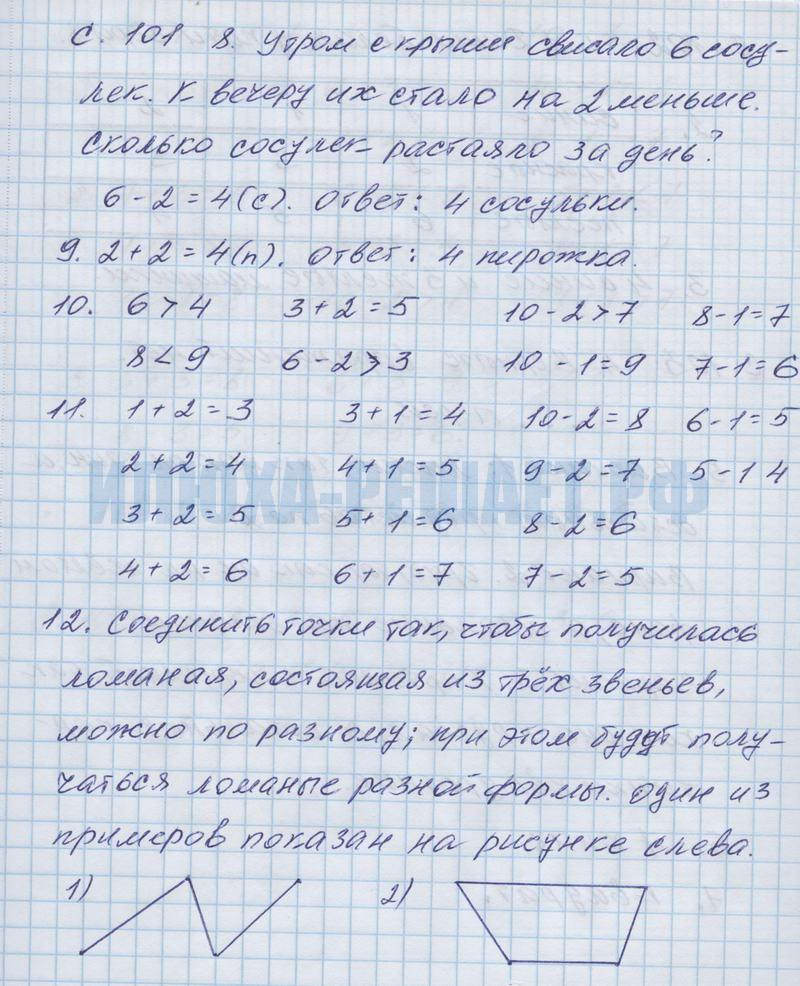 с. 101 8. Утром с крыши свисало 6 сосу-
лек. К вечеру их стало на 2 меньше.
Сколько сосулек растаяло за день?
6 - 2 = 4 (с). Ответ: 4 сосульки.
9. 2 + 2 = 4 (п). Ответ: 4 пирожка.
10. 6 > 4 3 + 2 = 5 10 - 2 > 7 8 - 1 = 7
8 < 9 6 - 2 > 3 10 - 1 = 9 7 - 1 = 6
11. 1 + 2 = 3 3 + 1 = 4 10 - 2 = 8 6 - 1 = 5
2 + 2 = 4 4 + 1 = 5 9 - 2 = 7 5 - 1 4
ИЛЮХА-РЕШАЕТ.РФ
3 + 2 = 5 5 + 1 = 6 8 - 2 = 6
4 + 2 = 6 6 + 1 = 7 7 - 2 = 5
12. Соединить точки так, чтобы получилась
ломаная, состоящая из трёх звеньев,
можно по разному; при этом будут полу-
чаться ломаные разной формы. Один из
примеров показан на рисунке слева.
1) 2)